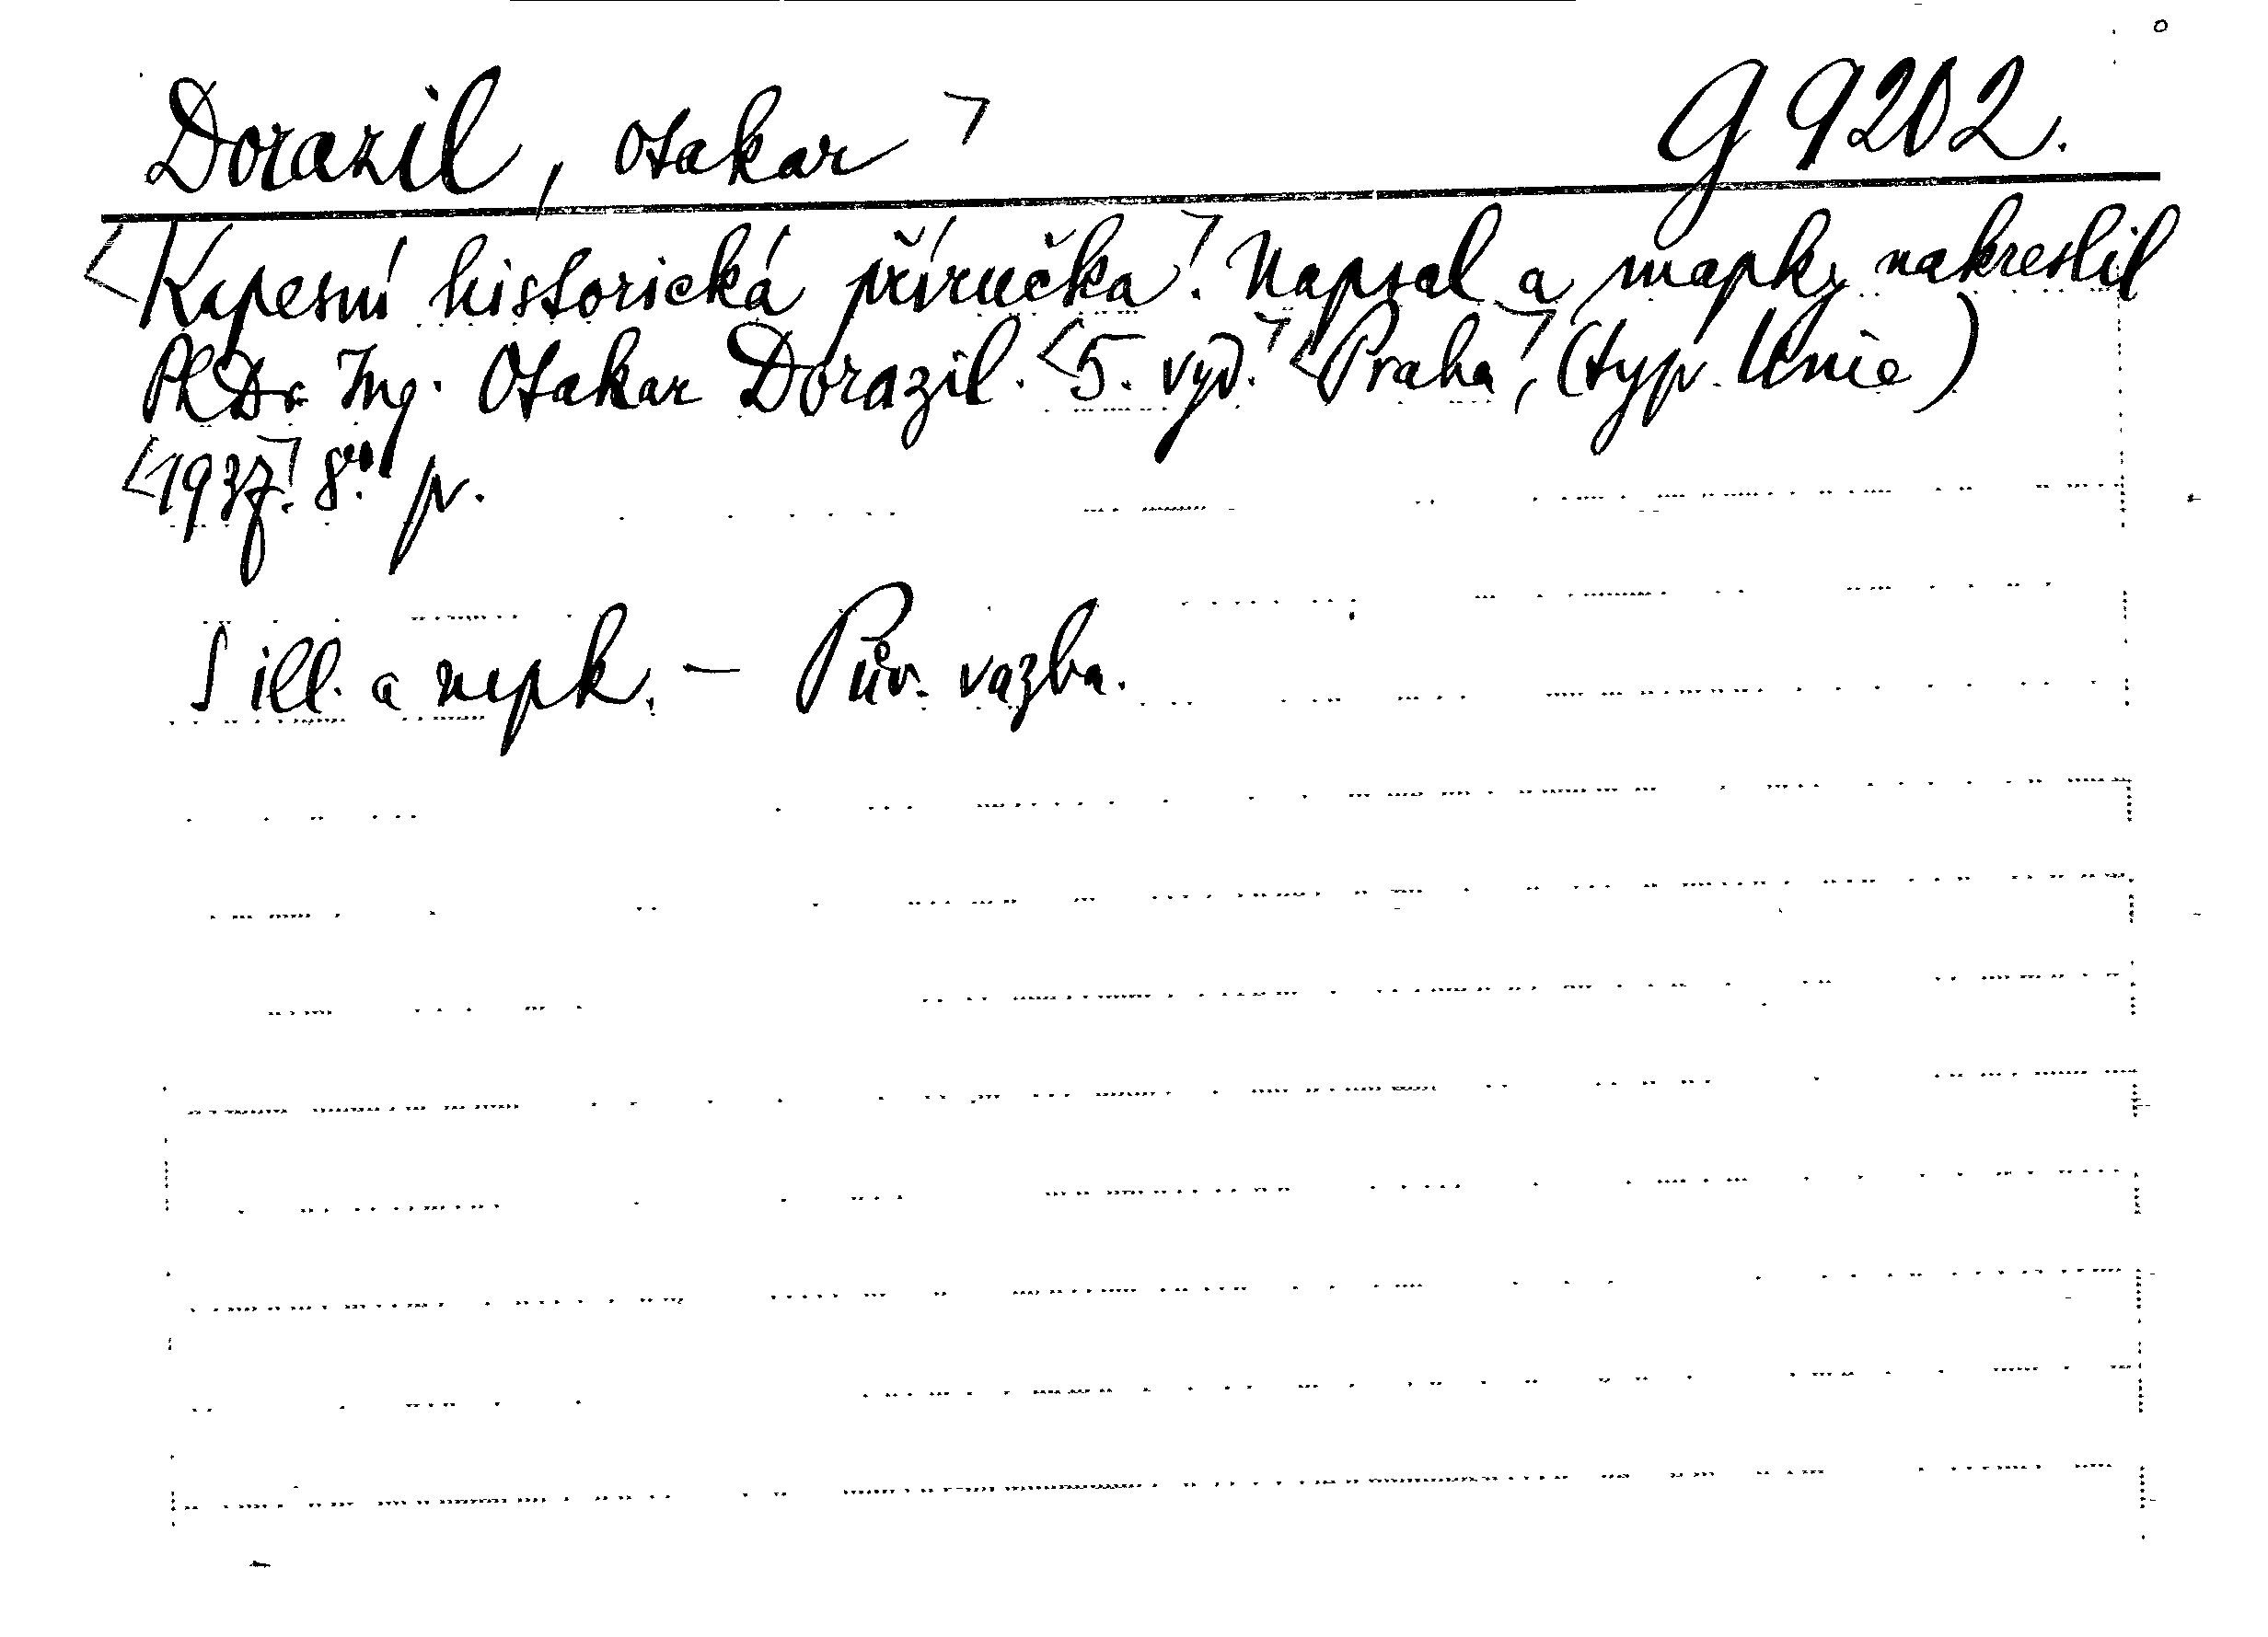 Dorazil, Otakar ㄱ G 9202.
<Kapesní historická příručkaㄱ. Napsal a mapky nakreslil
PhDr Ing. Otakar Dorazil. <5. vyd.ㄱ <Prahaㄱ, (typ. Unie)
<1937ㄱ. 8°. p.
S ill. a mpk. — Pův. vazba.